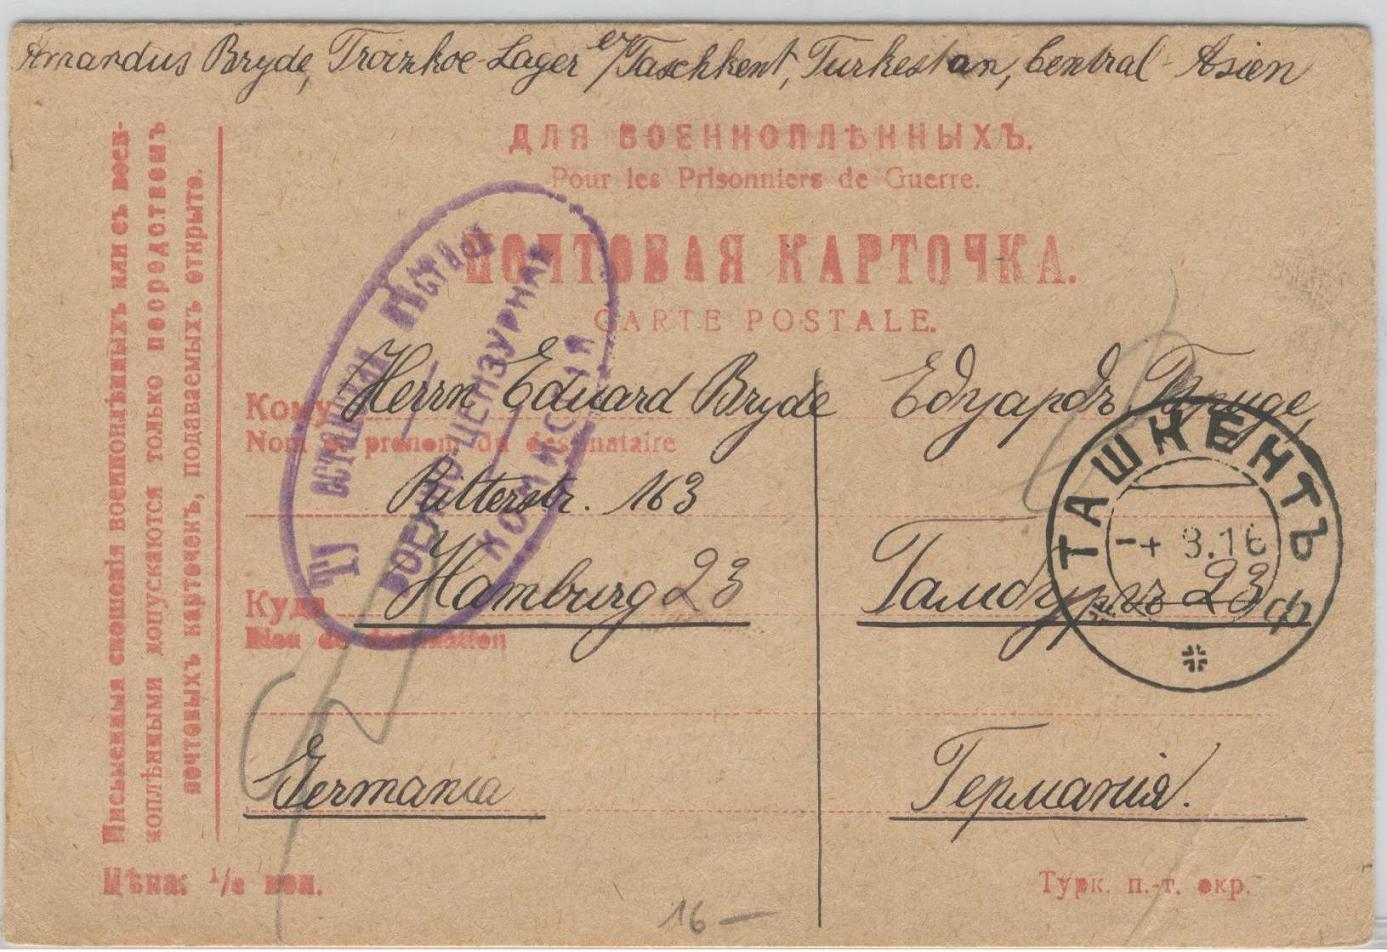 Amandus Bryde, Troizkoe-Lager b/Taschkent, Turkestan, Central-Asien
ДЛЯ ВОЕННОПЛѢННЫХЪ.
Pour les Prisonniers de Guerre.
ПОЧТОВАЯ КАРТОЧКА.
CARTE POSTALE.
Письменныя сношенія военноплѣнныхъ или съ воен-
ноплѣнными допускаются только посредствомъ
почтовыхъ карточекъ, подаваемыхъ открыто.
Кому Herrn Eduard Bryde Едуардъ Бриде,
Nom et prénom du destinataire
Ritterstr. 163
Куда Hamburg 23 Гамбургъ 23
Lieu de destination
Germania Германія.
Цѣна: 1/2 коп.
Турк. п.-т. окр.
16 —
ВОЕННО-ЦЕНЗУРНАЯ
КОМИССІЯ
ТАШКЕНТЪ
3.16
Ф